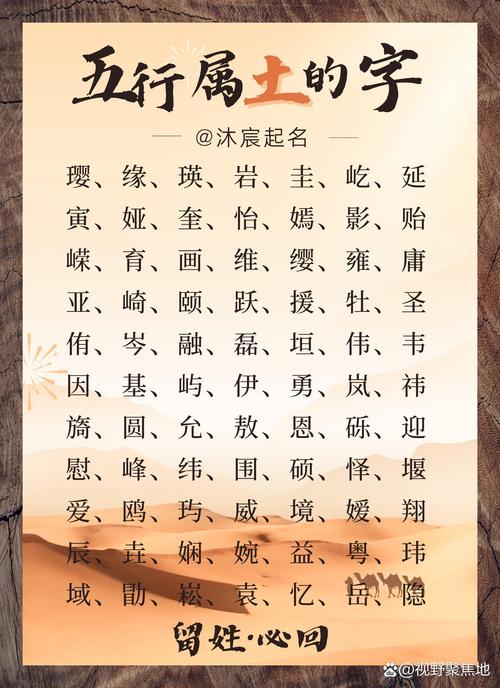 五行属土的字
@沐宸起名
璎、缘、瑛、岩、圭、屹、延
寅、娅、奎、怡、嫣、影、贻
嵘、育、画、维、缨、雍、庸
亚、崎、颐、跃、援、牡、圣
侑、岑、融、磊、垣、伟、韦
因、基、屿、伊、勇、岚、祎
旖、圆、允、敖、恩、砾、迎
慰、峰、纬、围、硕、怿、堰
爱、鸥、玙、威、境、嫒、翔
辰、垚、娴、婉、益、粤、玮
域、勖、崧、袁、忆、岳、隐
留姓·必回
@视野聚焦地